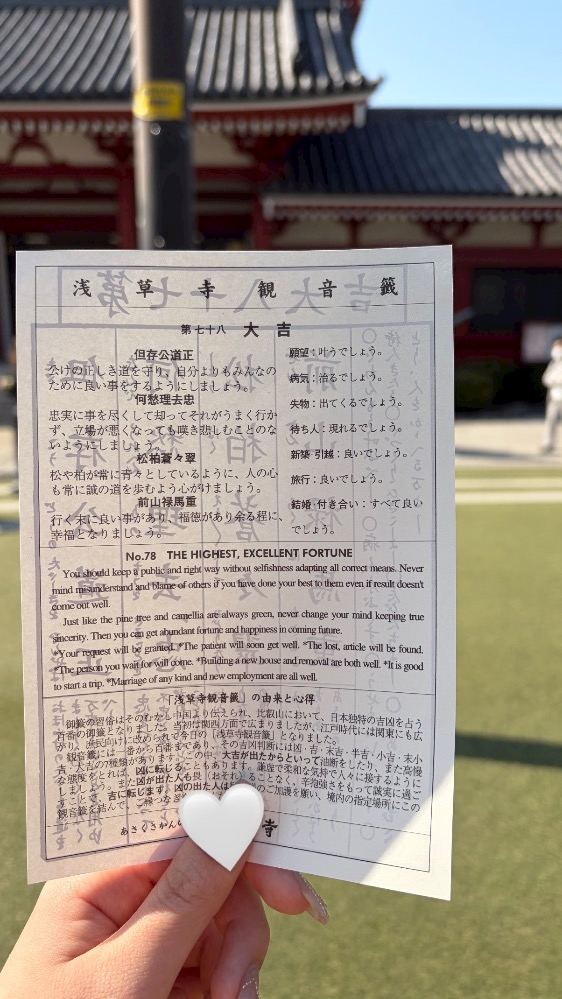 浅草寺観音籤
第七十八 大吉
但存公道正
公けの正しき道を守り、自分よりもみんなの
ために良い事をするようにしましょう。
何愁理去忠
忠実に事を尽くして却ってそれがうまく行か
ず、立場が悪くなっても嘆き悲しむことのな
いようにしましょう。
松柏蒼々翠
松や柏が常に青々としているように、人の心
も常に誠の道を歩むよう心がけましょう。
前山禄馬重
行く末に良い事があり、福徳があり余る程に、
幸福となりましょう。
願望：叶うでしょう。
病気：治るでしょう。
失物：出てくるでしょう。
待ち人：現れるでしょう。
新築・引越：良いでしょう。
旅行：良いでしょう。
結婚・付き合い：すべて良い
でしょう。
No.78 THE HIGHEST, EXCELLENT FORTUNE
You should keep a public and right way without selfishness adapting all correct means. Never
mind misunderstand and blame of others if you have done your best to them even if result doesn't
come out well.
Just like the pine tree and camellia are always green, never change your mind keeping true
sincerity. Then you can get abundant fortune and happiness in coming future.
*Your request will be granted. *The patient will soon get well. *The lost, article will be found.
*The person you wait for will come. *Building a new house and removal are both well. *It is good
to start a trip. *Marriage of any kind and new employment are all well.
「浅草寺観音籤」の由来と心得
御籤の習俗はそのむかし中国より伝えられ、比叡山において、日本独特の吉凶を占う
百番の御籤となりました。当初は関西方面で広まりましたが、江戸時代には関東にも広
がり、庶民向けに改められて今日の「浅草寺観音籤」となりました。
観音籤には一番から百番まであり、その吉凶判断には凶・吉・末吉・半吉・小吉・末小
吉・大吉の7種類があります。この中、大吉が出たからといって油断をしたり、また高慢
な態度をとれば、凶に転じることもあります。謙虚で柔和な気持で人々に接するように
しましょう。また凶が出た人も畏（おそ）れることなく、辛抱強さをもって誠実に過ご
すことで、吉に転じます。凶の出た人は
のご加護を願い、境内の指定場所にこの
観音籤を結んで、ご縁つな
あさくさかんの
寺